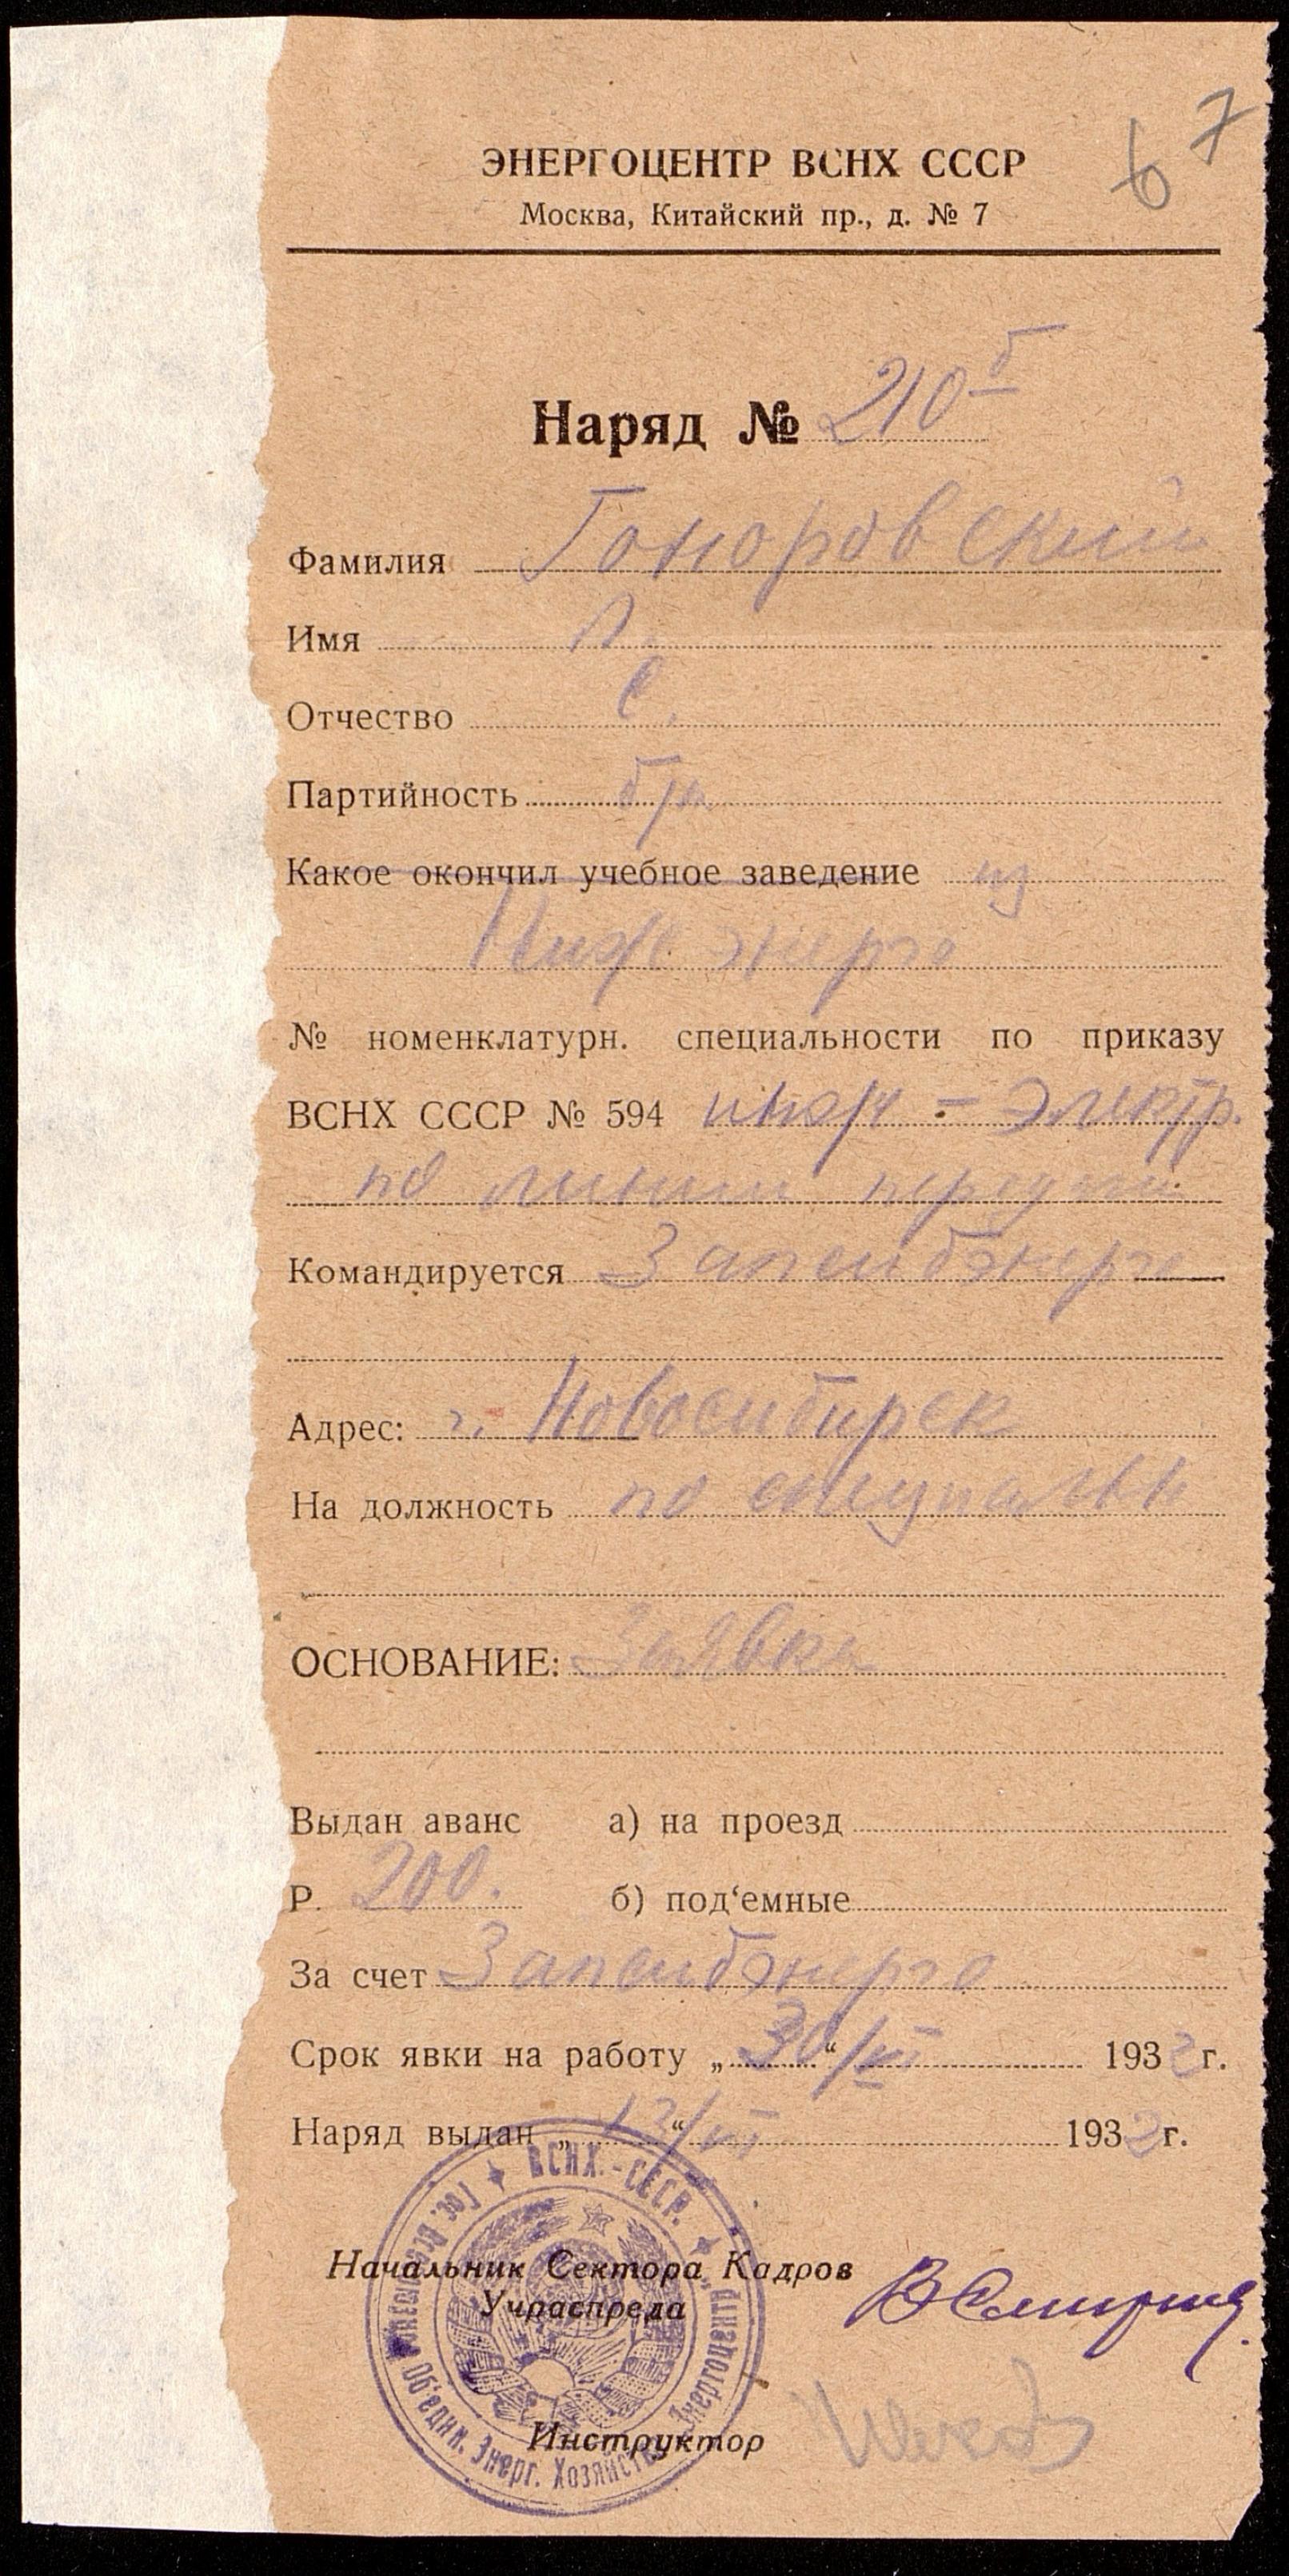 6 7
ЭНЕРГОЦЕНТР ВСНХ СССР
Москва, Китайский пр., д. № 7
Наряд № 210 б
Фамилия Гоноровский
Имя Л.
Отчество С.
Партийность б/п
Какое окончил учебное заведение из
Нижэнерго
№ номенклатурн. специальности по приказу
ВСНХ СССР № 594 инж - электр.
по линии передачи
Командируется Запсибэнерго
Адрес: г. Новосибирск
На должность по специальн
ОСНОВАНИЕ: Заявка
Выдан аванс а) на проезд
Р. 200. б) под‘емные
За счет Запсибэнерго
Срок явки на работу „30“/VI 1932 г.
Наряд выдан „13“/VI 1932 г.
ВСНХ.-СССР.
Гос. Всесоюзное Об'един. Энерг. Хозяйства "Энергоцентр"
Начальник Сектора Кадров
Учраспреда
Инструктор